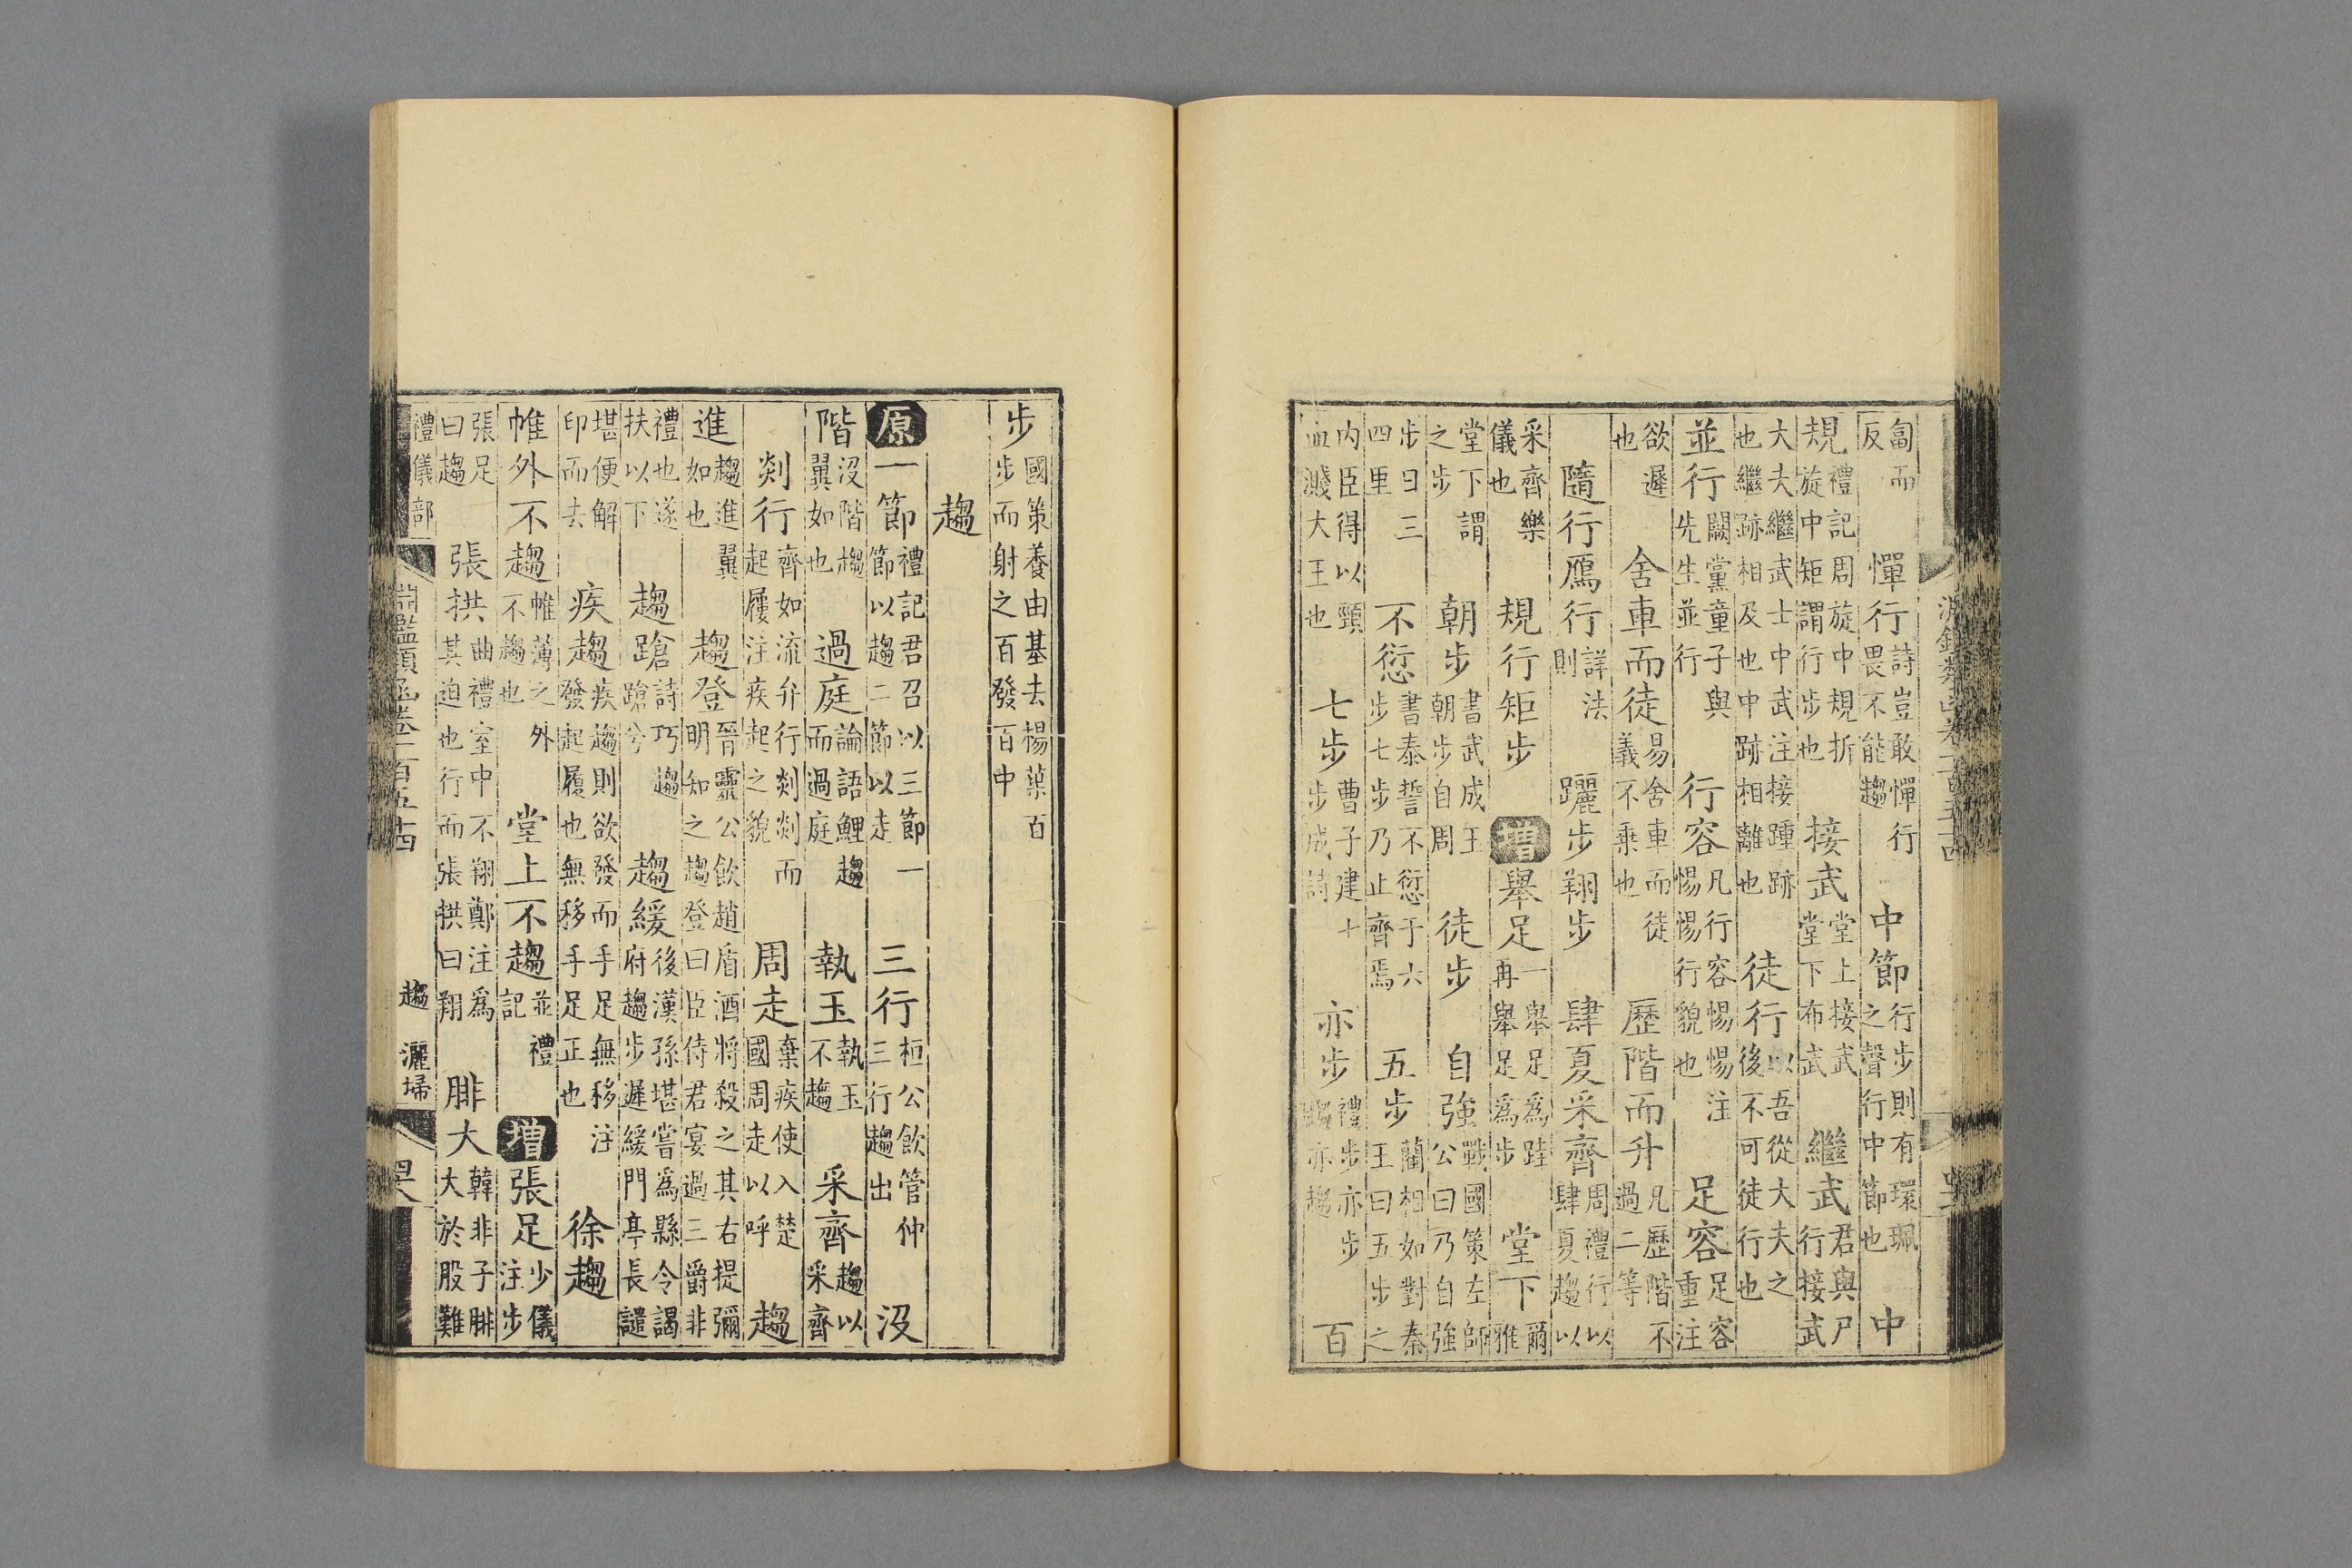 而反憚行詩豈敢憚行畏不能趨中節行步則有環珮之聲行中節也中
規禮記周旋中規折旋中矩謂行步也接武堂上接武堂下布武繼武君與尸行接武
大夫繼武士中武注接踵跡也繼跡相及也中跡相離也徒行以吾從大夫之後不可徒行也
並行闕黨童子與先生並行行容凡行容惕惕注惕惕行貌也足容足容重注
欲遲也舍車而徒易舍車而徒義不乘也歷階而升凡歷階不過二等
隨行鴈行詳法則躧步翔步肆夏采齊周禮行以肆夏趨以
采齊樂儀也規行矩步增舉足一舉足為跬再舉足為步堂下爾雅
堂下謂之步朝步書武成王朝步自周徒步自強戰國策左師公曰乃自強
步曰三四里不愆書泰誓不愆于六步七步乃止齊焉五步藺相如對秦王曰五步之
内臣得以頸血濺大王也七步曹子建七步成詩亦步禮步亦步趨亦趨百
步國策養由基去楊葉百步而射之百發百中
趨
原一節禮記君召以三節一節以趨二節以走三行桓公飲管仲三行趨出沒
階沒階趨翼如也過庭論語鯉趨而過庭執玉執玉不趨采齊趨以采齊
剡行齊如流弁行剡剡而起屨注疾起之貌周走棄疾使入楚國周走以呼趨
進趨進翼如也趨登晉靈公飲趙盾酒將殺之其右提彌明知之趨登曰臣侍君宴過三爵非
禮也遂扶以下趨蹌詩巧趨蹌兮趨緩後漢孫堪嘗為縣令謁府趨步遲緩門亭長譴
堪便解印而去疾趨疾趨則欲發而手足無移注發起履也無移手足正也徐趨
帷外不趨帷薄之外不趨也堂上不趨並禮記增張足少儀注步
張足曰趨張拱曲禮室中不翔鄭注為其迫也行而張拱曰翔腓大韓非子腓大於股難
禮儀部 淵鑑類函卷二百五十四 趨 灑埽